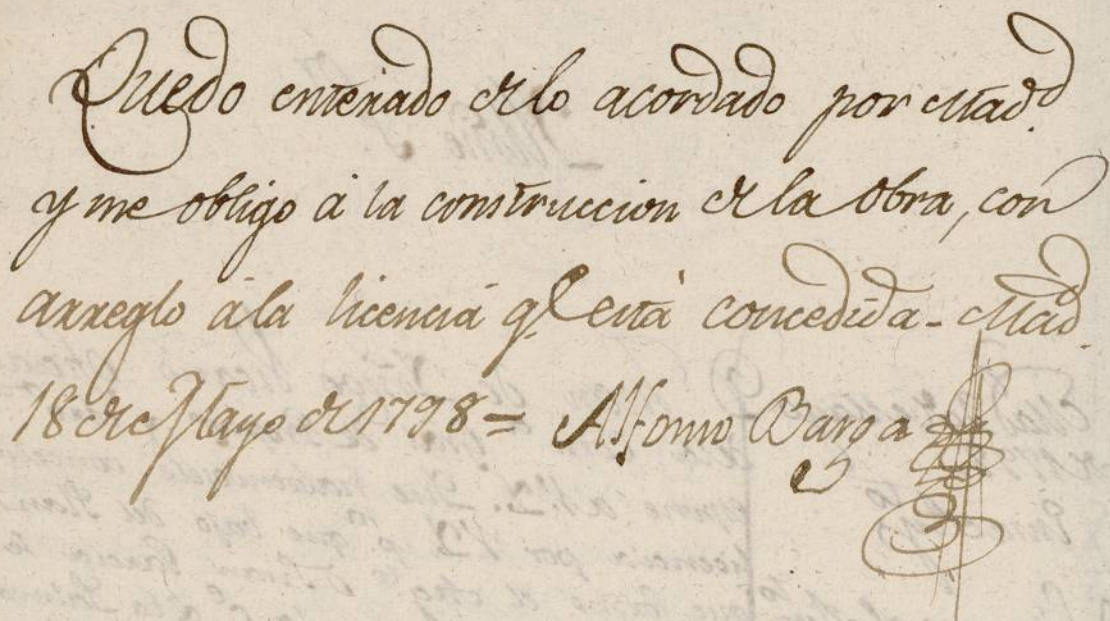 Quedo enterado de lo acordado por Mad.d
y me obligo á la construccion de la Obra, con
arreglo á la licencia q.e está concedida - Mad.d
18 de Mayo de 1798 = Alfonso Barga